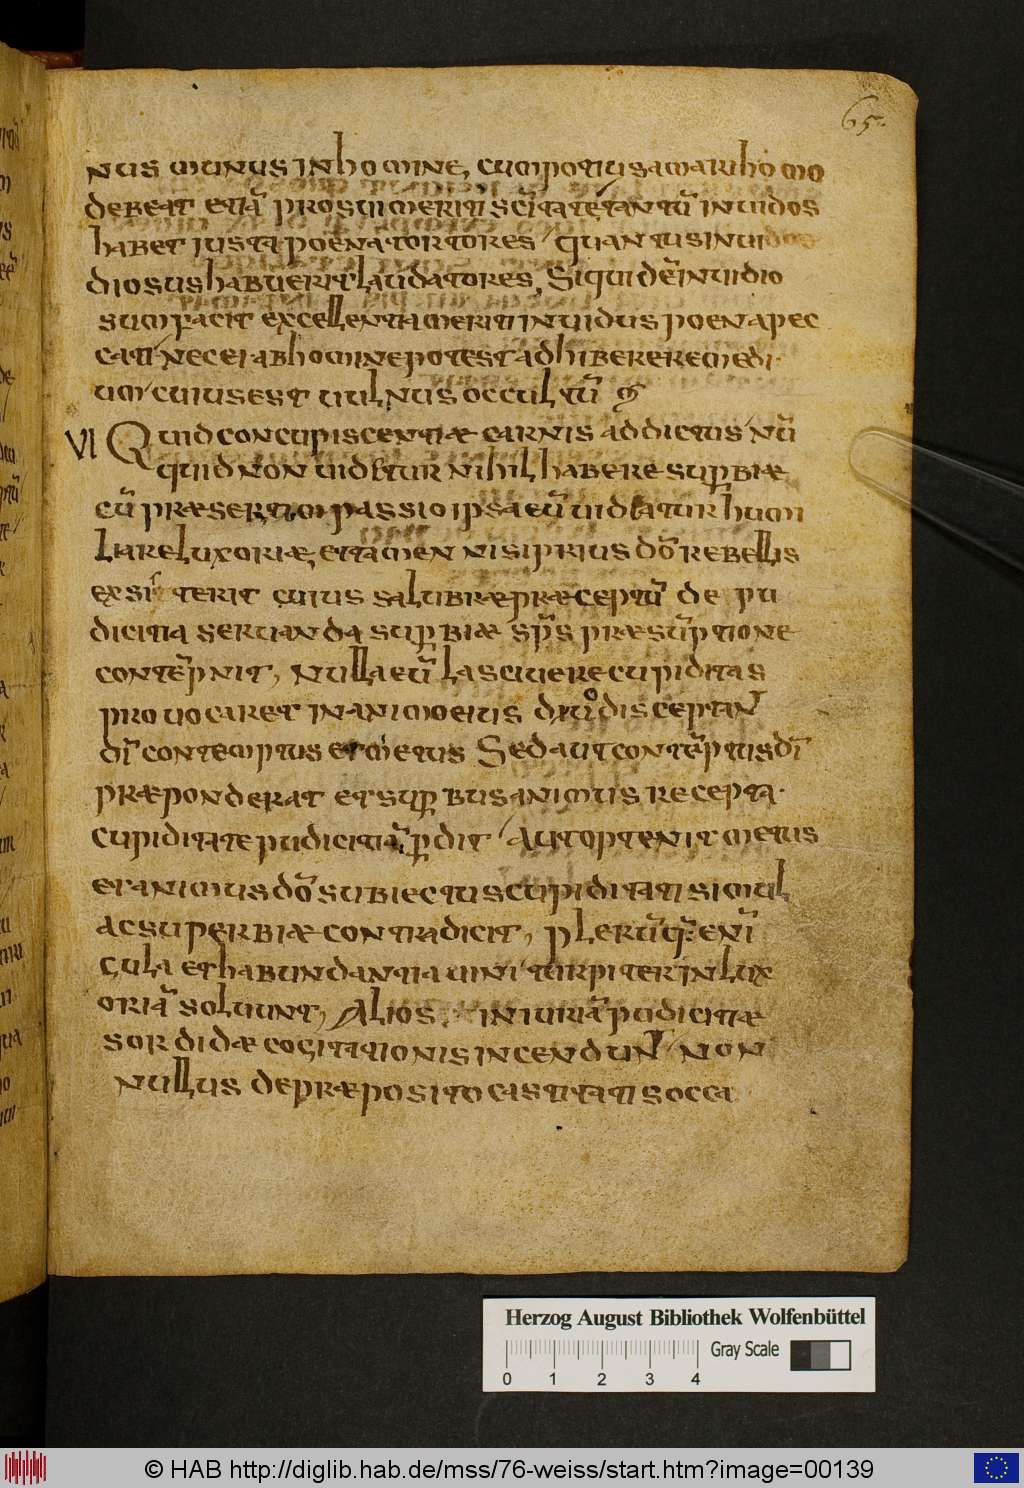 65
nus munus inhomine, cumpotius amari homo
debeat etiā prosui meriti scītate tantū inuidos
habet iusta poena tortores quantus inuidos
diosus habuerit laudatores, Siquidē inuidio
sum facit excellentia meriti inuidus poena pec
cati nec ei ab homine potest adhibere remedi
um cuius est uulnus occultū
VI Quid concupiscentiæ carnis addictus nū
quid non uidetur nihil habere supbiæ
cū præsertim passio ipsa eū uideatur humi
liare luxoriæ, et tamen nisi prius dō rebellis
exsiterit cuius salubriæ præceptū de pu
dicitia seruanda supbiæ sps præsūptione
contēpnit, nulla eū lasciuere cupiditas
prouocaret in animo eius diu disceptan
di contemptus et metus Sed aut contēptus di
præponderat et supbus animus recepta
cupiditate pudicitiā pdit Aut optenit metus
et animus dō subiectus cupiditati simul
ac superbiæ contradicit, plerūq: enī
gula et habundantia uini turpiter in lux
oriā soluunt, Alios iniuriā pudicitiæ
sordidæ cogitationis incendun non
nullus de præposito castitatis occa
Herzog August Bibliothek Wolfenbüttel
Gray Scale
0 1 2 3 4
© HAB http://diglib.hab.de/mss/76-weiss/start.htm?image=00139